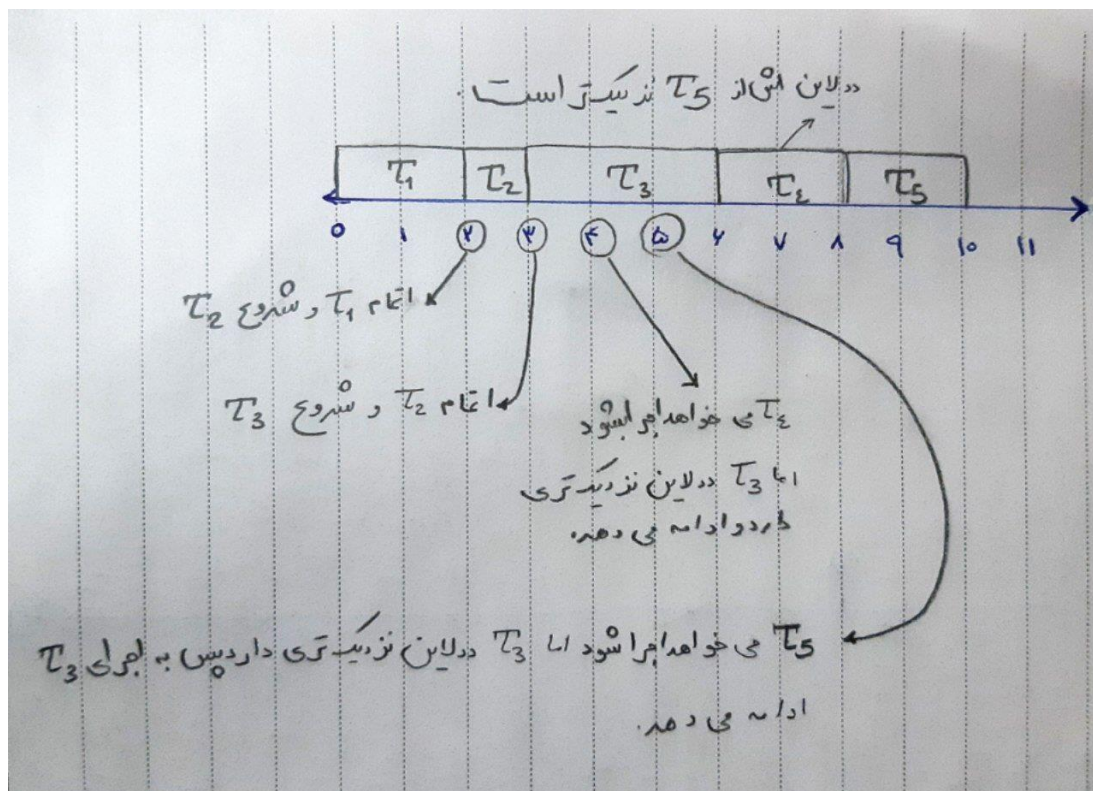 ددلاین اش از τ5 نزدیک‌تر است.
τ1 τ2 τ3 τ٤ τ5
0 ۱ ۲ ۳ ۴ ۵ ۶ ۷ ۸ ۹ ۱۰ ۱۱
اتمام τ1 و شروع τ2
اتمام τ2 و شروع τ3
τ٤ می خواهد اجرا بشود
اما τ3 ددلاین نزدیک‌تری
دارد و ادامه می دهد.
τ5 می خواهد اجرا شود اما τ3 ددلاین نزدیک‌تری دارد پس به اجرای τ3
ادامه می دهد.